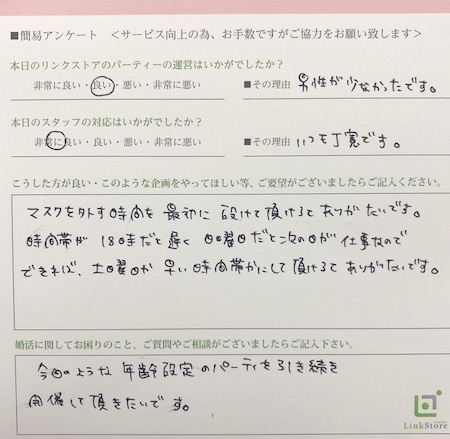 ■簡易アンケート ＜サービス向上の為、お手数ですがご協力をお願い致します＞
本日のリンクストアのパーティーの運営はいかがでしたか？
非常に良い・良い・悪い・非常に悪い ■その理由 男性が少なかったです。
本日のスタッフの対応はいかがでしたか？
非常に良い・良い・悪い・非常に悪い ■その理由 いつも丁寧です。
こうした方が良い・このような企画をやってほしい等、ご要望がございましたらご記入ください。
マスクを外す時間を最初に設けて頂けるとありがたいです。
時間帯が18時だと遅く日曜日だと次の日が仕事なので
できれば、土曜日か早い時間帯かにして頂けるとありがたいです。
婚活に関してお困りのこと、ご質問やご相談がございましたらご記入下さい。
今回のような年齢設定のパーティを引き続き
開催して頂きたいです。
LinkStore